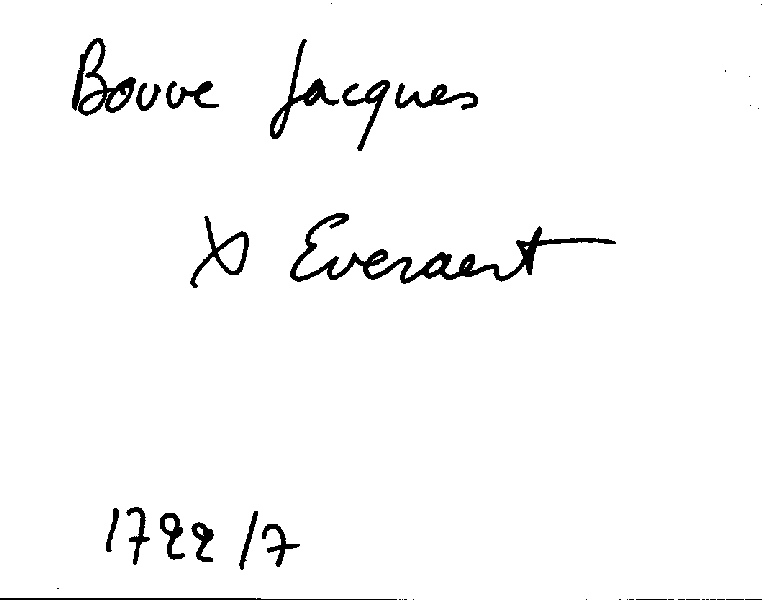 Bouve Jacques
x Everaert
1722/7